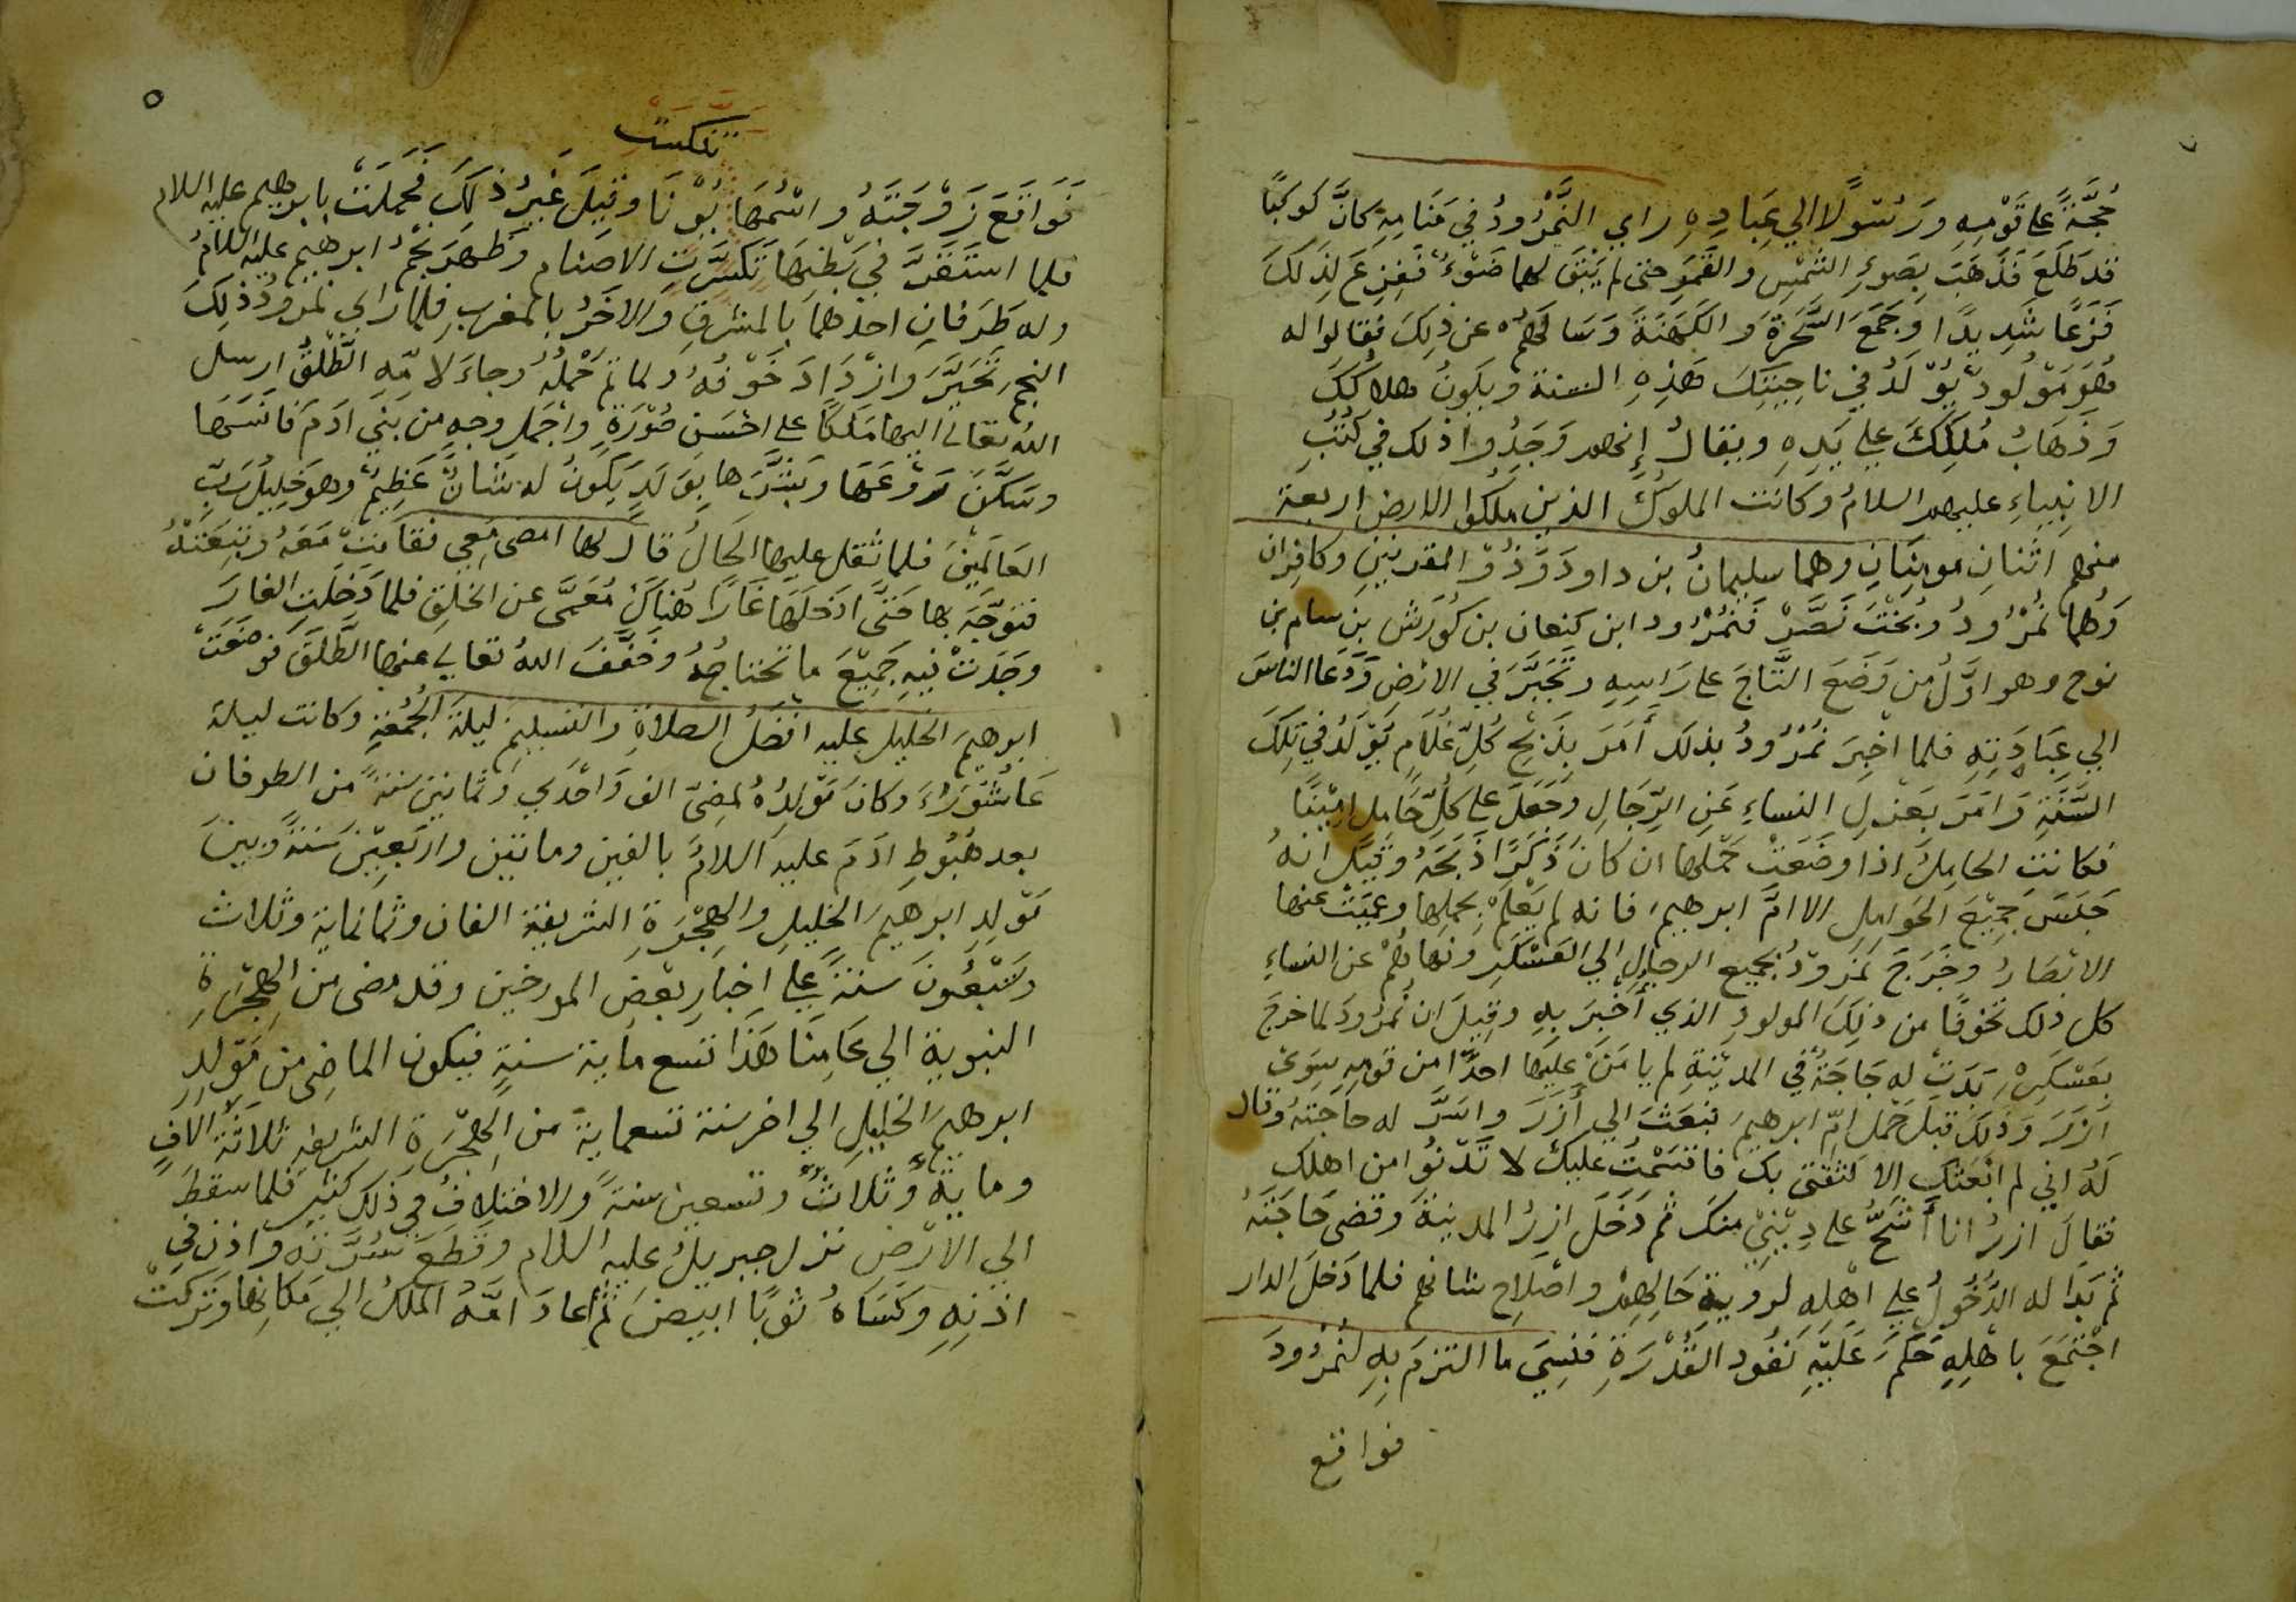 حُجَّةً علي قَوْمِهِ ورَسُولًا الي عِبَادِهِ راي النَّمْرُودُ في مَنَامِهِ كانَّ كَوكَبًا
قد طَلَعَ فَذَهَبَ بِضَوءِ الشَّمْسِ والقَمَرِ حتى لم يَبْقَ لهما ضَوْءٌ فَفَزِعَ لِذَلكَ
فَزَعًا شَدِيدًا وَجَمَعَ السَّحَرَةَ والكَهَنَةَ وَسَالَهُمْ عن ذلِكَ فقالوا له
هُوَ مَوْلُودٌ يُوْلَدُ في ناحِيَتِكَ هَذِهِ السنة ويكونُ هلاكُكَ
وَذَهَابُ مُلْكِكَ علي يَدِهِ ويقالُ إنهم وَجَدُوا ذلك في كُتُبِ
الانبِيَاءِ عليهم السلامُ وكانت الملوكُ الذين ملكوا الارض اربعة
منهم اثنانِ مومِنَانِ وهما سليمانُ بن داودَ وَذُوْ القرنينِ وكافران
وَهُما نُمْرُودُ وبُخْتَ نَصَّرْ فَنمْرُود ابن كنعان بن كُورَش بن سام بن
نوح وهو اوَّلُ من وَضَعَ التَّاجَ علي رَاسِهِ وتَجَبَّرَ في الارْضِ وَدَعَا الناسَ
الي عِبَادَتِهِ فلما اخْبِرَ نُمْرُودُ بذلك أَمَرَ بِذَبْحِ كُلِّ غُلَامٍ يُوْلَدُ في تِلكَ
السَّنَةِ وَامَرَ بَعَزلِ النساءِ عَنِ الرِّجَالِ وَجَعَلَ علي كُلِّ حَامِلٍ امِيْنًا
فكانتِ الحامِلُ اذا وضَعَتْ حَمْلَها ان كان ذَكَرًا ذَبَحَهُ وقِيْلَ انهُ
حَبَسَ جَمِيْعَ الحَوامِلِ الا امَّ ابرهيم فانه لم يَعْلَمْ بحملِها وعَمِيَتْ عنها
الابْصَارُ وخَرَجَ نمرودُ بجميع الرجالِ الي العَسْكَرِ ونهاهُمْ عن النساءِ
كل ذلك تخوفًا من ذلِكَ المولودِ الذي أُخْبِرَ بِهِ وقِيلَ ان نُمْرُودَ لما خرجَ
بعَسْكَرِهِ بَدَتْ له حَاجَةٌ في المدِيْنَةِ لم يا مَنْ عليها احدًا من قومِهِ سِوَى
ازَرَ وَذلكَ قبلَ حَمْلِ امِّ ابرهيمَ فبعَثَ الي أَزَرَ واسَرَّ له حاجَتَهُ وقال
لَهُ اني لم ابْعَثك الا لثقَتي بك فاقسَمْتُ عليكَ لا تَدْنُوا من اهلِك
فقالَ ازرُ انا أَشَحُّ علي دِيْنِيْ منكَ ثم دَخَلَ ازرُ المدينةَ وقضى حَاجَتَهُ
ثم بَدَا له الدُّخُولُ علي اهْلِهِ لرويةِ حَالِهِمْ واصْلَاحِ شانهم فلما دَخلَ الدار
اجْتَمَعَ باهْلِهِ حَكمَ عَلَيْهِ نفُود القُدْرَةِ فَنسِيَ ما التزمَ بِهِ لِنُمْرُودَ
فواقع
تنكست
فَوَاقَعَ زَوْجَتَهُ واسْمُهَا نُوْنَا وقِيلَ غَيرُ ذلكَ فَحَمَلَتْ بابرهيم عليه السلام
فلما استَقَرَّ في بَطْنِهَا تَكسَّرَتِ الاصنام وَظهَرَ نَجْمُ ابرهيم عليه السلامُ
وله طَرَفانِ احدُهما بالمشرقِ والاخَرُ بالمغربِ فلما رَاى نمرودُ ذلِكَ
النجم تحَيَّرَ وازْدَادَ خَوْفُهُ ولما تمَّ حَمْلُهُ وجاءَ لامِّهِ الطَّلْقُ ارسل
اللهُ تعالى اليها مَلكًا علي احْسَنِ صُوْرَةٍ واجْمَلِ وجهٍ من بَنِي ادَمَ فانَسَهَا
وسَكَّنَ رَوْعَهَا وبَشَّرَها بوَلَدٍ يَكونُ له شانٌ عَظِيمٌ وهو خَلِيْلُ رَبِّ
العَالَمِيْنَ فلما ثقل عليها الحَالُ قالَ لها امضى مَعِي فقامَتْ مَعَهُ وتبِعَتْهُ
فتوَجَّهَ بها حَتَّى ادخَلَهَا غَارًا هُنَاكَ مُعَمَّى عن الخلْقِ فلما دَخَلَتِ الغارَ
وجَدَتْ فيهِ جَمِيْعَ ما تحتاجُهُ وخَفَّفَ اللهُ تعالي عنها الطَّلْقَ فوضَعَتْ
ابرهيمَ الخليل عليه افضَلُ الصلاةِ والتسليم ليلَةَ الجُمُعَةِ وكانت ليلة
عَاشُوْرَاءَ وكانَ مَوْلِدُهُ لمضِيِّ الف وَاحْدَي وَثمانين سنَةً من الطوفان
بعد هُبُوطِ ادَمَ عليه السلامُ بالفين وماتين واربَعِيْنَ سَنَةً وبينَ
مَوْلِدِ ابرهيمَ الخليلِ والهِجْرَةِ الشريفة الفان وثمانماية وثلاث
وتِسْعُونَ سنةً علي اختِيارِ بعْضِ المورخين وقد مضى من الهِجْرَةِ
النبوية الي عَامِنَا هَذَا تسع ماية سنةٍ فيكون الماضِى من مَوْلِدِ
ابرهيمَ الخليلِ الي اخر سَنة تسعماية من الهِجْرَةِ الشريفة ثلاثَةَ الافٍ
وماية وثلاثٌ وتسعين سنةً والاختلافُ في ذلكَ كثير فلما سقطَ
الي الارْضِ نزل جبريلُ عليه السلام وقطَعَ سُرَّتَه واذن في
اذنِهِ وكَسَاهُ ثوبًا ابيضَ ثم أعادَ امَّهُ الملكُ الي مَكانِها وتركتْ